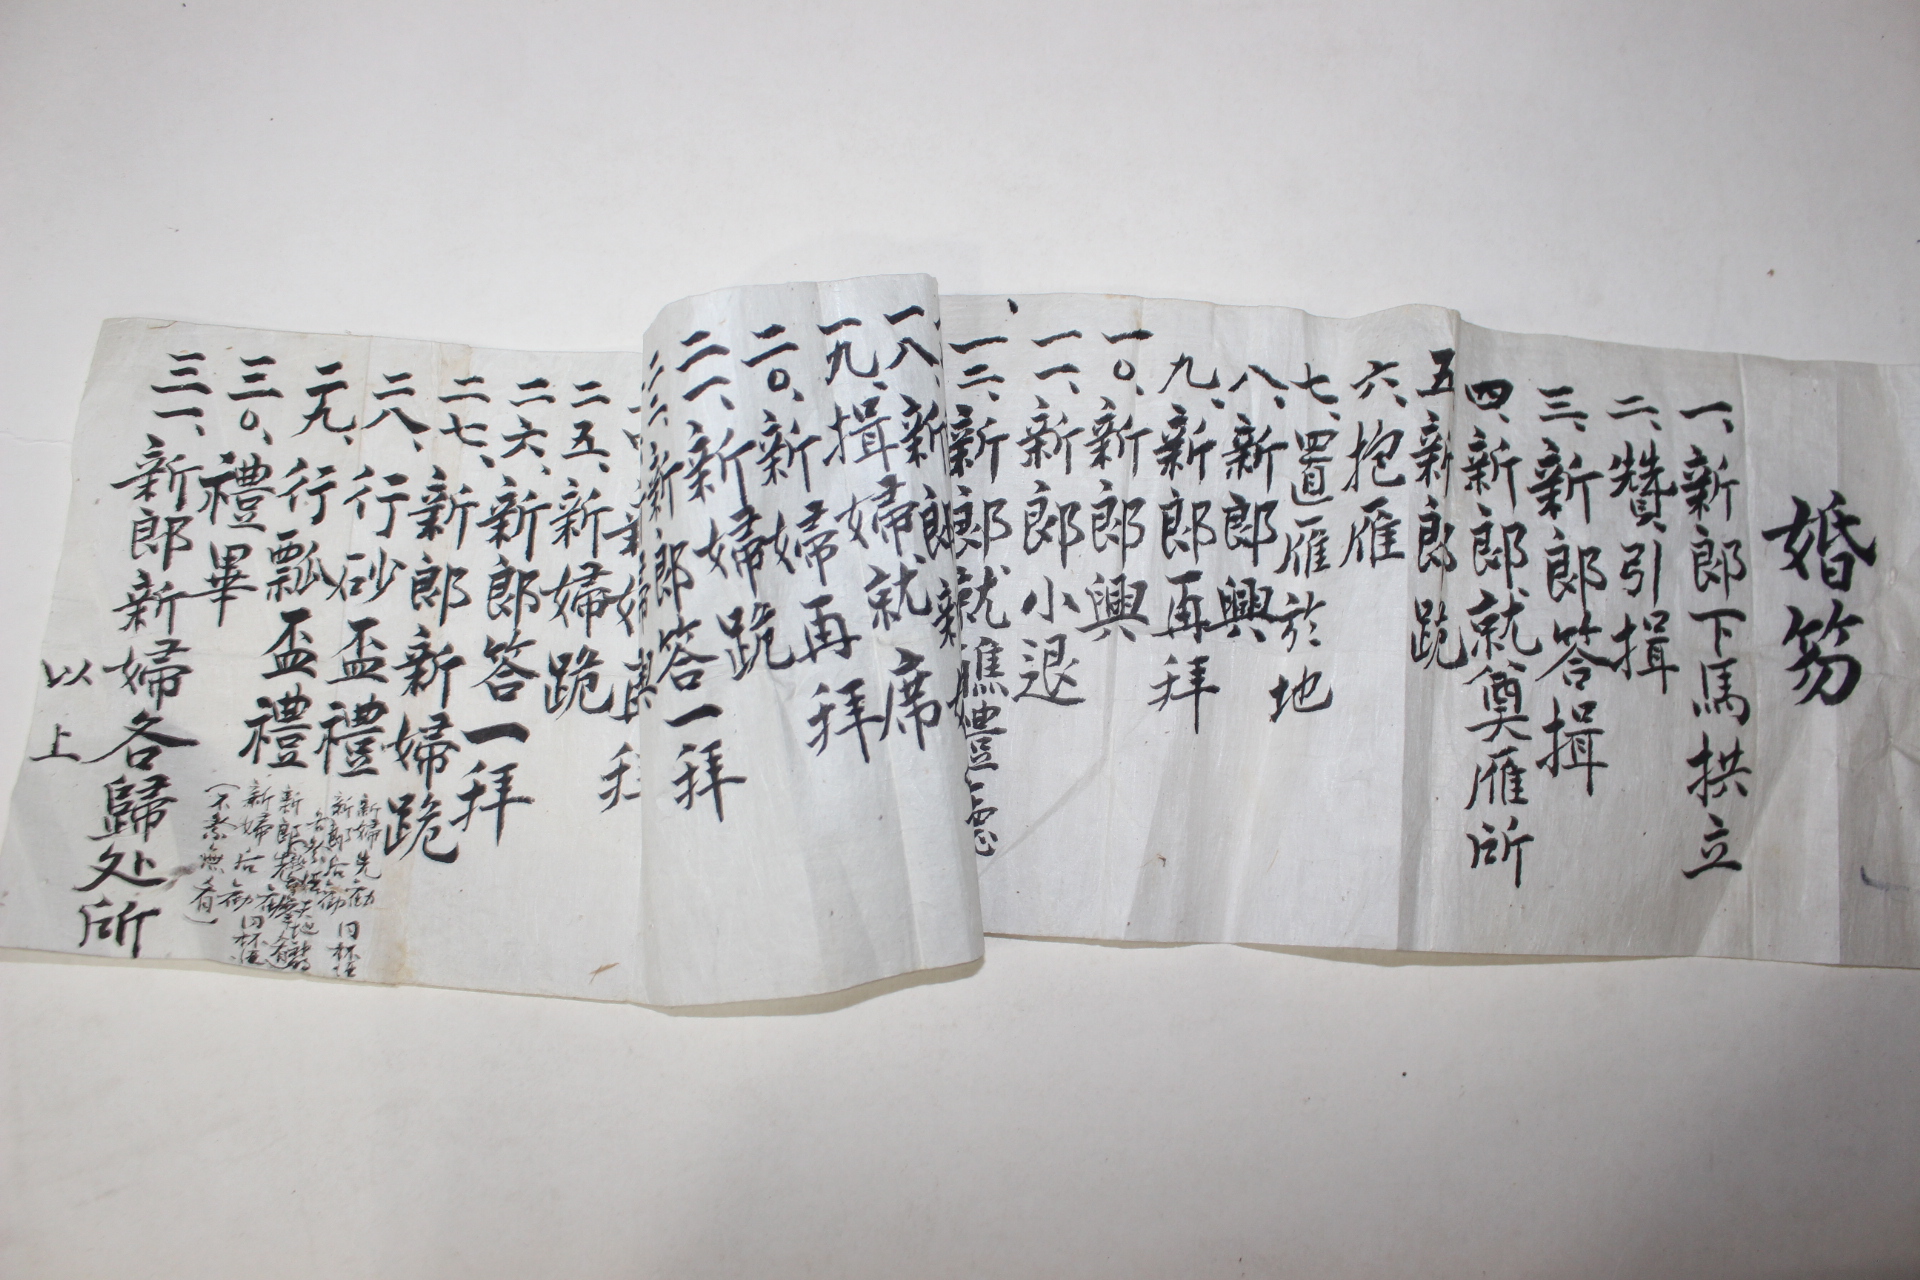 婚笏
一、新郎下馬拱立
二、贊引揖
三、新郎答揖
四、新郎就奠雁所
五新郎跪
六、抱雁
七、置雁於地
八、新郎興
九、新郎再拜
一〇、新郎興
一一、新郎小退
一二、新郎就醮禮
一八、新郎
一九、揖婦就席
二〇、新婦再拜
二一、新婦跪
新郎答一拜
二五、新婦跪
二六、新郎答一拜
二七、新郎新婦跪
二八、行砂盃禮
新婦先勸
新郎后勸 同杯
二九、行瓢盃禮
新婦后勸 同杯
三〇、禮畢
三一、新郎新婦各歸处所
以上